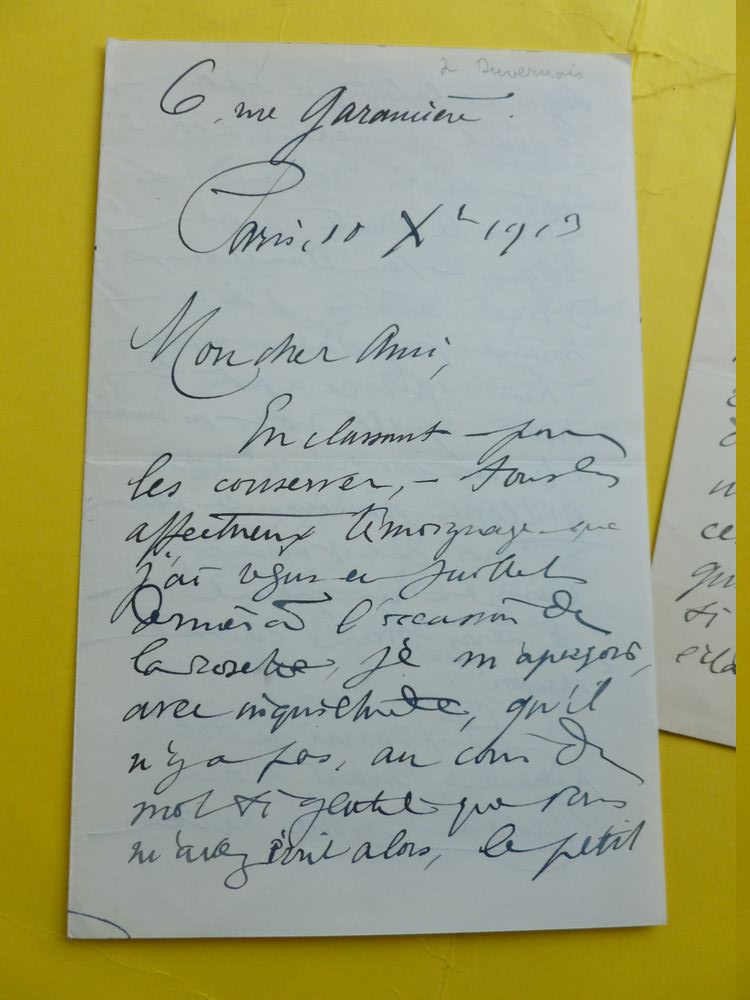 Duvernois
6, rue Garancière.
Paris, 10 Xbre 1913
Mon cher Ami,
En classant – pour
les conserver, – tous les
affectueux témoignages que
j'ai reçus en Juillet
dernier à l'occasion de
la rosette, je m'aperçois,
avec inquiétude, qu'il
n'y a pas, au coin du
mot si gentil que vous
m'avez écrit alors, le petit
ce
qu
si